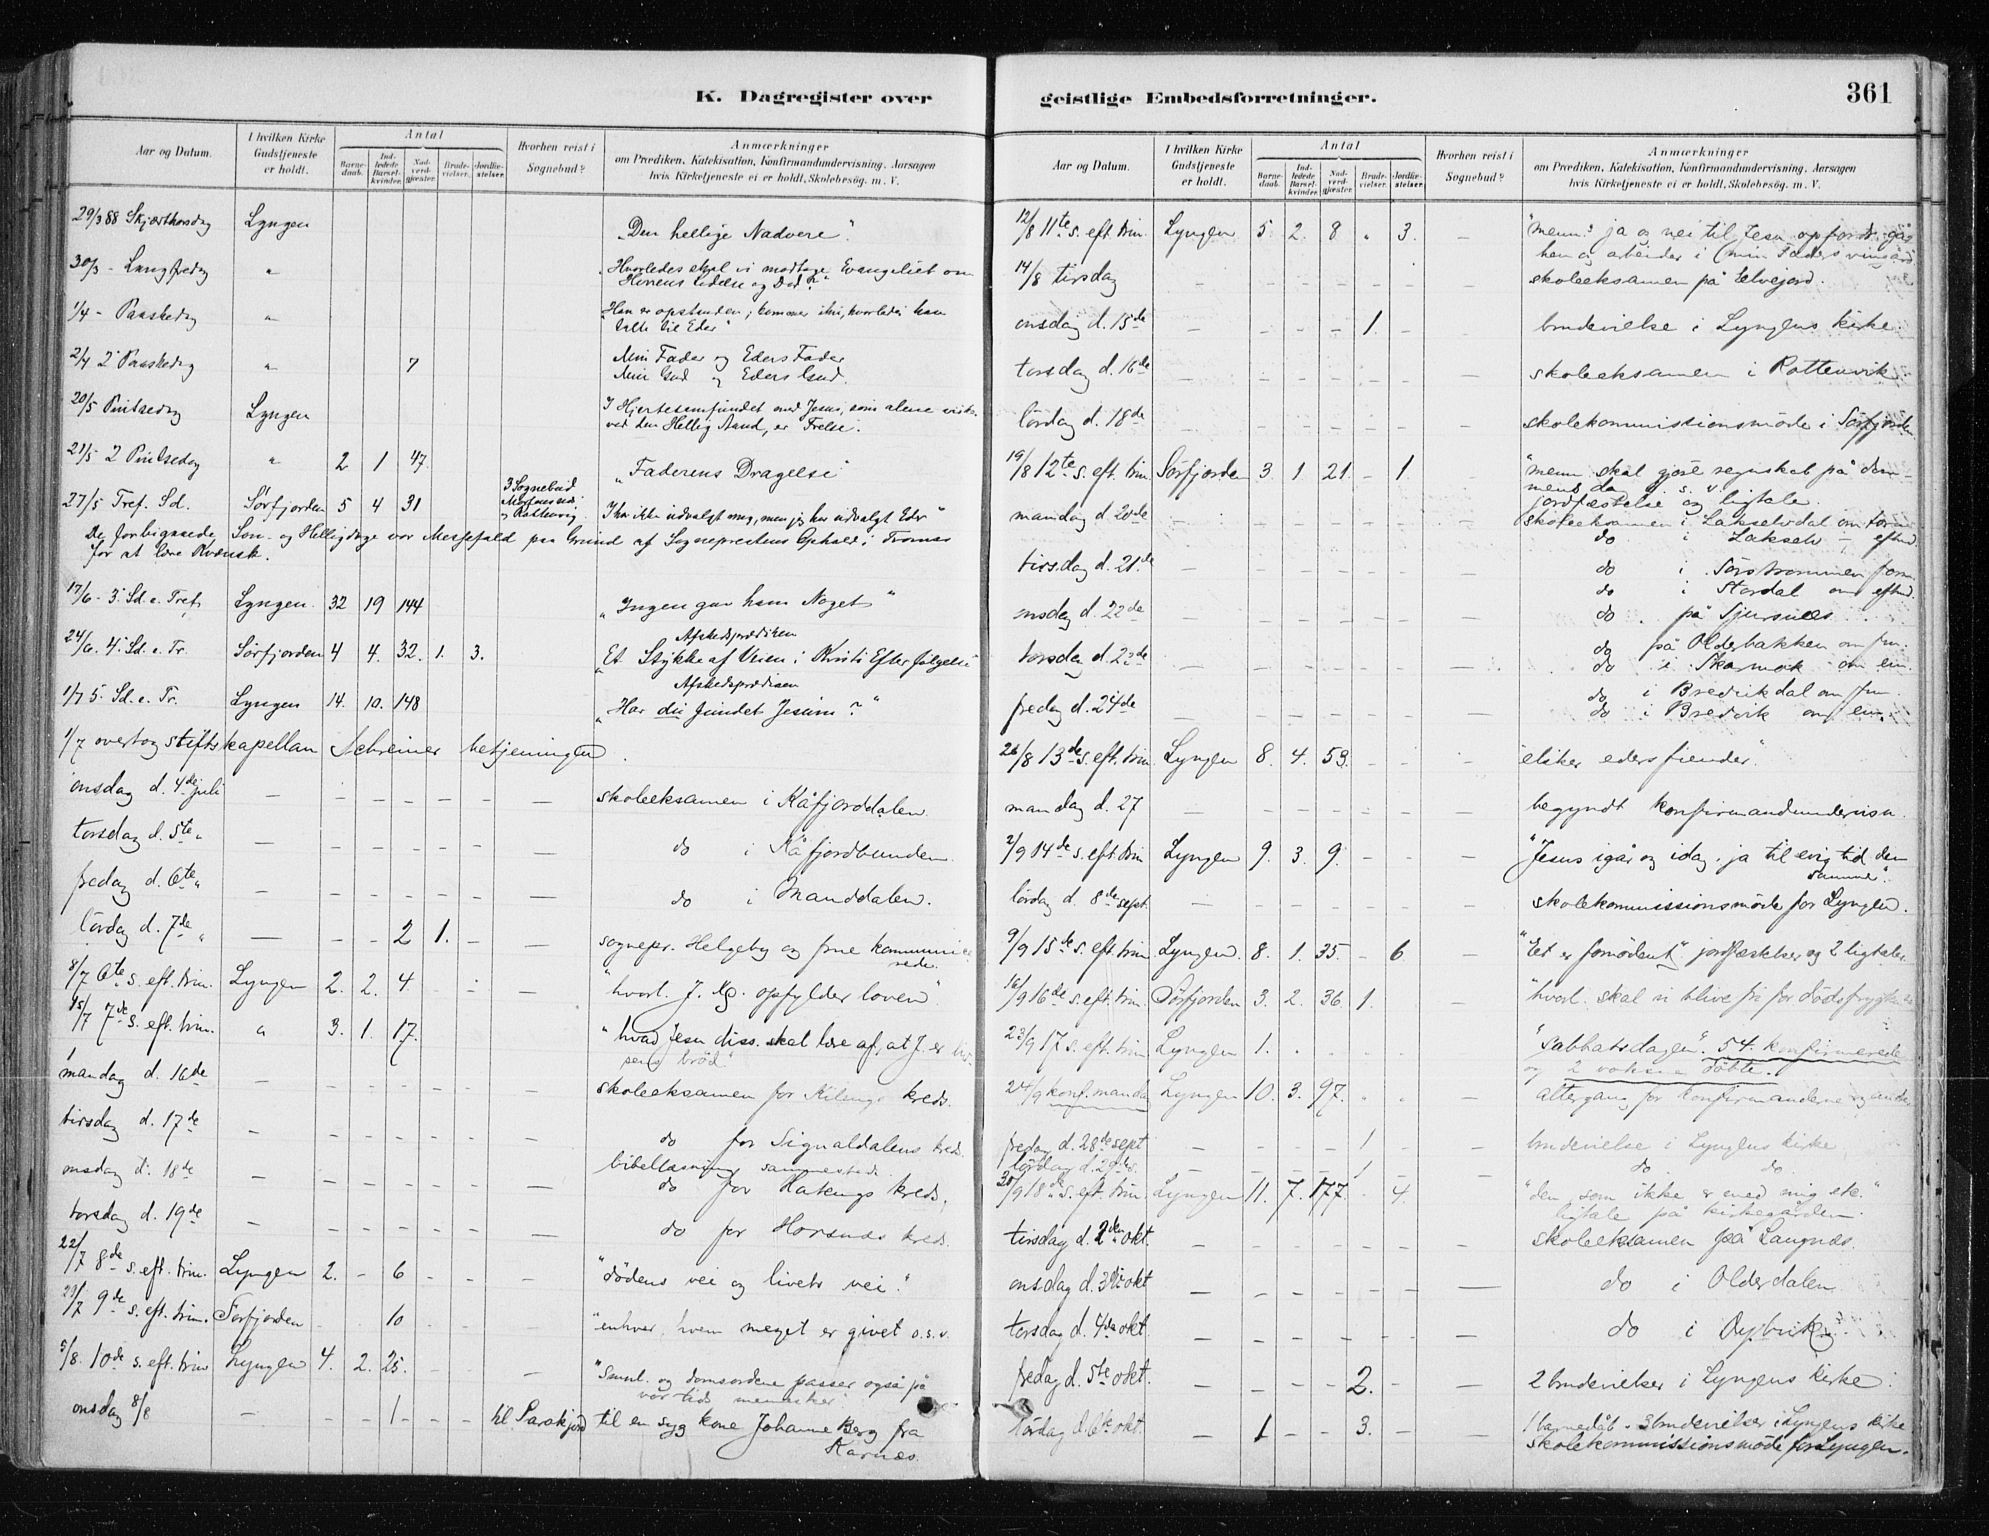 K. Dagregister over
geistlige Embedsforretninger.
361
Aar og Datum.
I hvilken Kirke Gudstjeneste er holdt.
Antal
Barnedaab.
Indledede Barselkvinder.
Nadverdgjæster.
Brudevielser.
Jordfæstelser.
Hvorhen reist i Sognebud?
Anmærkninger
om Prædiken, Katekisation, Konfirmandundervisning, Aarsagen
hvis Kirketjeneste ei er holdt, Skolebesøg. m. V.
29/3 88 Skjærthorsdag Lyngen "Den hellige Nadvere".
30/3 - Langfredag " "Hvorledes skal vi modtage Evangeliet om
Herrens Lidelse og Død?"
1/4 - Paaskedag " "Han er opstanden; kommer ihu, hvorledes han
talte til Eder"
2/4 2 Paaskedag " 7 Min Fader og Eders Fader
Min Gud og Eders Gud.
20/5 Pintsedag Lyngen I Hjertesamfundet med Jesus, som alene
ved den Hellig Aand, er Frelse.
21/5 2 Pintsedag " 2 1 47 "Faderens Dragelse"
27/5 Tref. Sd. Sørfjorden 5 4 31 3 Sognebud
I har ikke udvalgt mig, men jeg har udvalgt Eder"
De forbigaaede Søn- og Helligdage var Messefald paa Grund af Sogneprestens Ophold i Tromsø
for at lære Kvænsk.
17/6 - 3. Sd. e. Tref. Lyngen. 32 19 144 "Ingen gav ham Noget"
Afskedsprædiken
24/6. 4. Sd. e. Tr. Sørfjorden 4 4. 32. 1. 3. "Et Stykke af Veien i Kristi Efterfølgelse
Afskedsprædiken
1/7 5. Sd. e. Tr. Lyngen 14. 10. 148 "Har du fundet Jesum?"
1/7 overtog stiftskapellan Schreiner betjeningen.
onsdag d. 4de juli — — skoleeksamen i Kåfjorddalen.
torsdag d. 5te " — — do i Kåfjordbunden.
fredag d. 6te " — — do i Manddalen.
lördag d. 7de " — 2 1. — sognepr. Helgeby og frue kommunicerede.
8/7 6te s. eft. trin. Lyngen 2. 2. 4. — "hvorl. J. Kr. opfylder loven"
15/7 7de s. eft. trin. " 3. 1. 17. "hvad Jesu diss. skal lære af, at J. er livsens bröd"
mandag d. 16de — — skoleeksamen for kreds.
tirsdag d. 17de — — do for Signaldalens kreds.
bibellæsning sammesteds
onsdag d. 18de — — do for kreds.
torsdag d. 19de — — do for Horsnæs kreds.
22/7 8de s. eft. trin. Lyngen 2. - 6 — "dödens vei og livets vei."
29/7 9de s. eft. trin. Sörfjorden 10 — "enhver, hvem meget er givet o.s.v.
5/8. 10de s. eft. trin Lyngen 4. 2. 25. — og domsordene passer også på
vor tids mennesker"
onsdag 8/8 — 1 til en syg kone Johanne Berg fra
Karnæs.
Aar og Datum.
I hvilken Kirke Gudstjeneste er holdt.
Antal
Barnedaab.
Indledede Barselkvinder.
Nadverdgjæster.
Brudevielser.
Jordfæstelser.
Hvorhen reist i Sognebud?
Anmærkninger
om Prædiken, Katekisation, Konfirmandundervisning, Aarsagen
hvis Kirketjeneste ei er holdt, Skolebesøg. m. V.
12/8 11te s. eft. trin. Lyngen 5 2. 8 " 3. — ja og nei til Jesu opford. gå
hen og arbeider i (min Faders vingård
14/8 tirsdag — — skoleeksamen på Elvejord.
onsdag d. 15de — 1. — brudevielse i Lyngens kirke.
torsdag d. 16de — — skoleeksamen i Rottenvik
lördag d. 18de skolekommissionsmöde i Sörfjorden
19/8 12te s. eft. trin. Sörfjorden 3 1 21. - 1. — skal gjöre regnskab på dommens dag
jordfæstelse og ligtale.
mandag d. 20de — — skoleeksamen i Lakselvdal om form
do i Lakselv - eftm.
tirsdag d. 21de — do i Sörströmmen form.
do i Stordal om eftmd.
onsdag d. 22de — — do på Sjursnæs.
torsdag d. 23de — — do på Olderbakken om fm.
do i Skarmok om em.
fredag d. 24de — — do i Bredvikdal om fm.
do i Bredvik om em.
26/8 13de s. eft. trin. Lyngen 8. 4. 53. — "elsker eders fiender".
mandag d. 27 — — begyndt konfirmandundervisn.
2/9 14de s. eft. trin Lyngen 9. 3. 9. — "Jesus igår og idag, ja til evig tid den
samme".
lördag d. 8de sept. — — skolekommissionsmöde for Lyngen.
9/9 15de s. eft. trin Lyngen. 8. 1. 35. - 6. — "Et er fornödent", jordfæstelser og 2 ligtaler.
16/9 16de s. eft. trin. Sörfjorden 3. 2. 36. 1. — "hvorl. skal vi blive fri for dödsfrygten"
23/9 17 s. eft. trin Lyngen 1. "sabbatsdagen". 54. konfirmerede
og 2 voksne döbte.
24/9 konf. mandag Lyngen 10. 3. 97. — altergang for konfirmanderne og andre
fredag d. 28de sept — 1 — brudevielse i Lyngens kirke
lördag d. 29de s. — 1 do do.
30/9 18de s. eft. trin. Lyngen 11. 7. 177. 4. — "den, som ikke er med mig etc."
ligtale på kirkegården.
tirsdag d. 2den okt. — — skoleeksamen på Langnæs.
onsdag d. 3die okt — — do i Olderdalen
torsdag d. 4de okt. — — do i
fredag d. 5te okt. — 2. — 2 brudevielser i Lyngens kirke.
lördag d. 6te okt. — 1 3. — 1 barnedåb. 3 brudevielser i Lyngens kirke
skolekommissionsmöde for Lyngen.